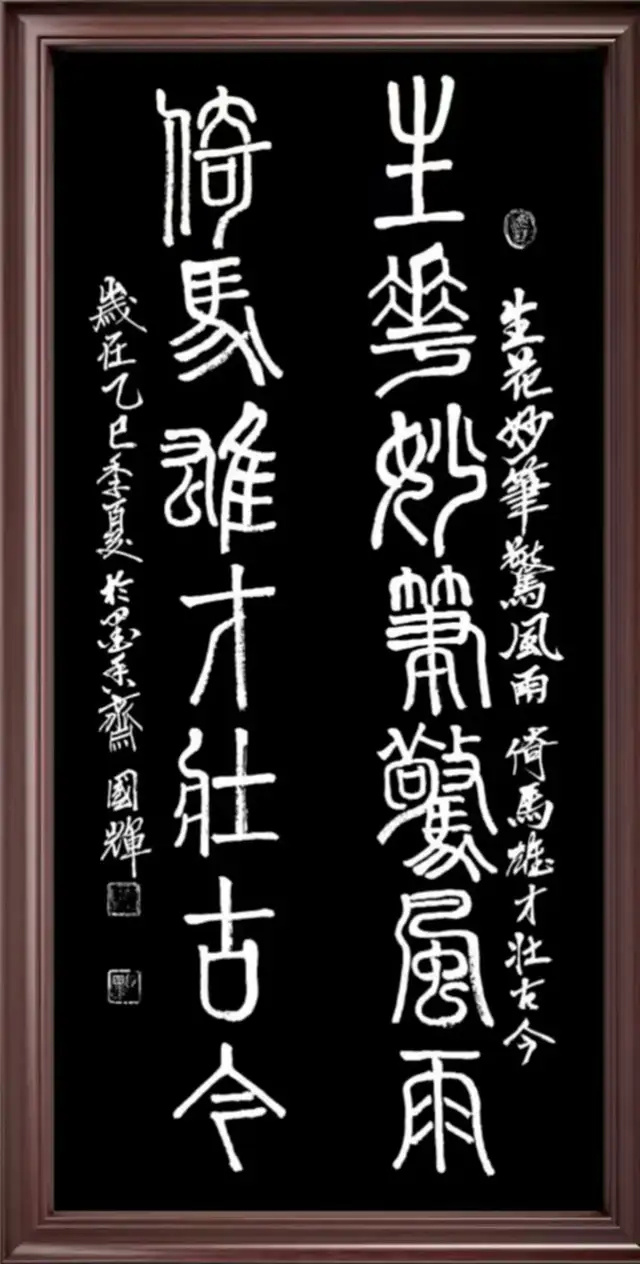 生華妙筆驚風雨
倚馬雄才壯古今
生花妙筆驚風雨 倚馬雄才壯古今
歲在乙巳季夏於墨香齋 國輝